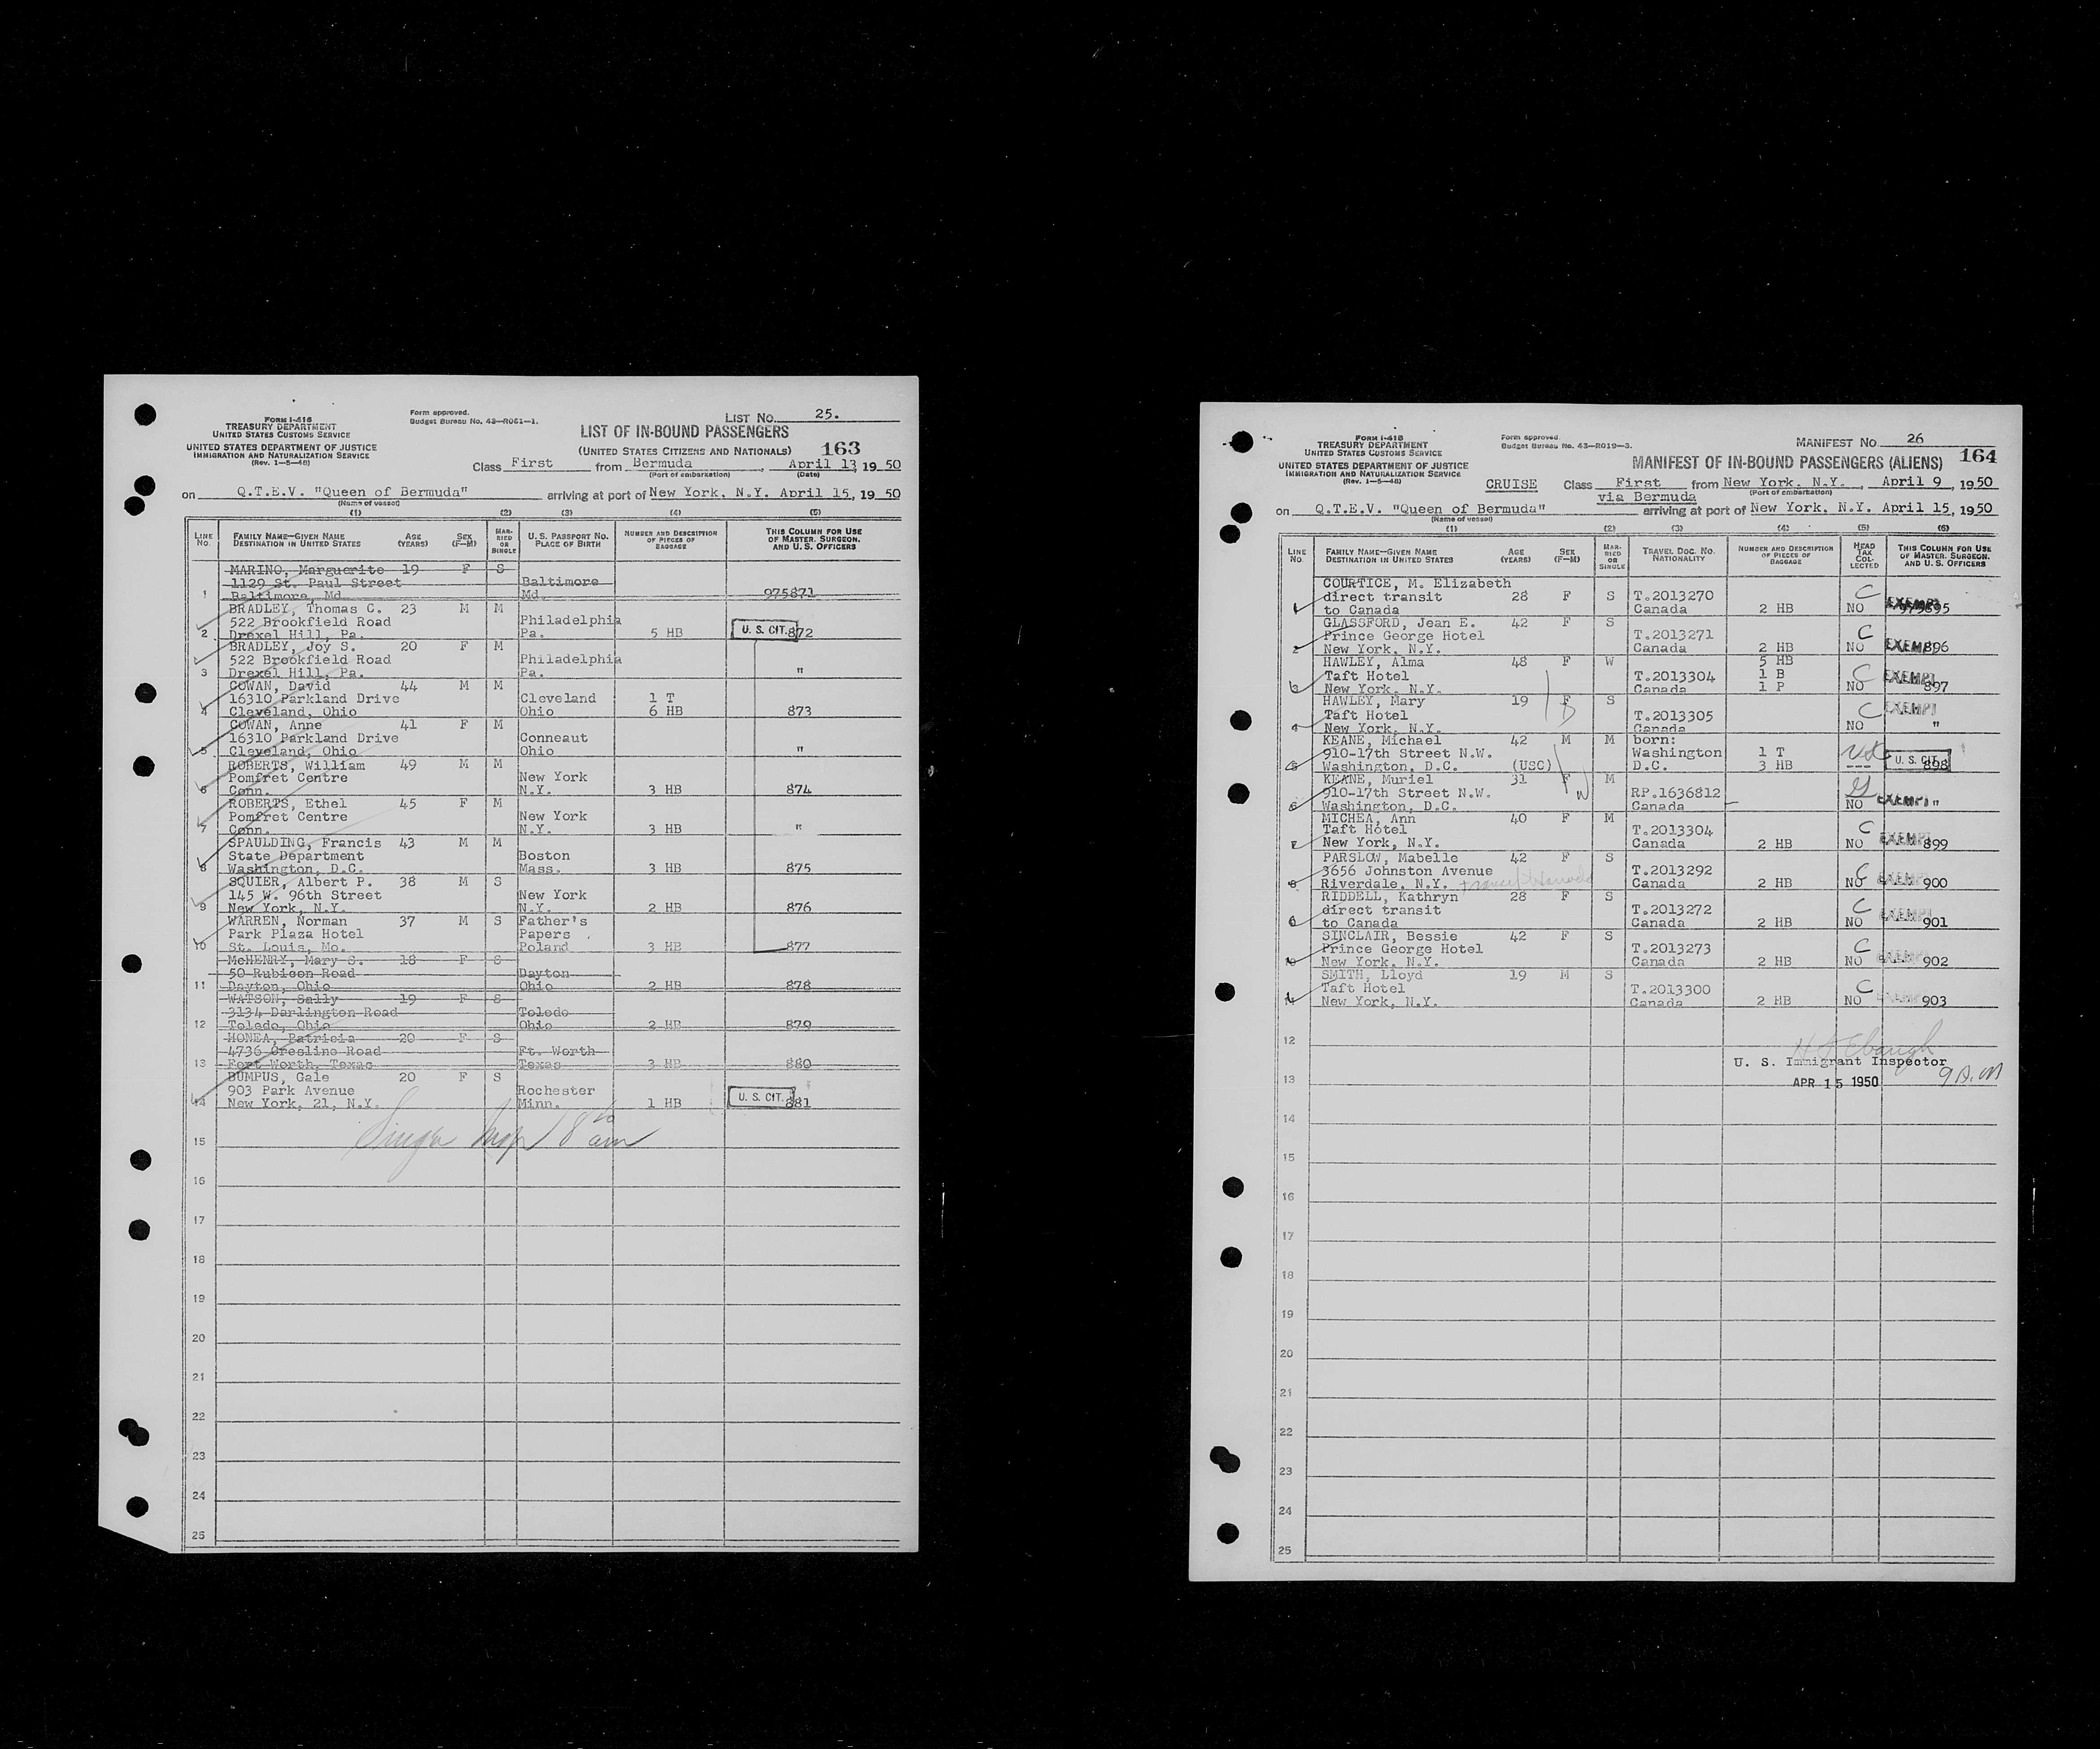 FORM I-416
TREASURY DEPARTMENT
UNITED STATES CUSTOMS SERVICE
UNITED STATES DEPARTMENT OF JUSTICE
IMMIGRATION AND NATURALIZATION SERVICE
(Rev. 1-5-48)
Form approved.
Budget Bureau No. 43-R061-1.
LIST NO. 25.
LIST OF IN-BOUND PASSENGERS
(UNITED STATES CITIZENS AND NATIONALS) 163
Class First from Bermuda, April 13, 1950
(Port of embarkation) (Date)
on Q.T.E.V. "Queen of Bermuda" arriving at port of New York, N.Y. April 15, 1950
(Name of vessel)
(1) (2) (3) (4) (5)
LINE NO. FAMILY NAME—GIVEN NAME DESTINATION IN UNITED STATES AGE (YEARS) SEX (F-M) MARRIED OR SINGLE U.S. PASSPORT NO. PLACE OF BIRTH NUMBER AND DESCRIPTION OF PIECES OF BAGGAGE THIS COLUMN FOR USE OF MASTER, SURGEON, AND U.S. OFFICERS
MARINO, Marguerite 19 F S
1129 St. Paul Street Baltimore
1 Baltimore, Md. Md. 975871
BRADLEY, Thomas C. 23 M M
522 Brookfield Road Philadelphia
2 Drexel Hill, Pa. Pa. 5 HB U. S. CIT. 872
BRADLEY, Joy S. 20 F M
522 Brookfield Road Philadelphia
3 Drexel Hill, Pa. Pa. "
COWAN, David 44 M M
16310 Parkland Drive Cleveland 1 T
4 Cleveland, Ohio Ohio 6 HB 873
COWAN, Anne 41 F M
16310 Parkland Drive Conneaut
5 Cleveland, Ohio Ohio "
ROBERTS, William 49 M M
Pomfret Centre New York
6 Conn. N.Y. 3 HB 874
ROBERTS, Ethel 45 F M
Pomfret Centre New York
7 Conn. N.Y. 3 HB "
SPAULDING, Francis 43 M M
State Department Boston
8 Washington, D.C. Mass. 3 HB 875
SQUIER, Albert P. 38 M S
145 W. 96th Street New York
9 New York, N.Y. N.Y. 2 HB 876
WARREN, Norman 37 M S Father's
Park Plaza Hotel Papers
10 St. Louis, Mo. Poland 3 HB 877
McHENRY, Mary S. 18 F S
50 Rubicon Road Dayton
11 Dayton, Ohio Ohio 2 HB 878
WATSON, Sally 19 F S
3134 Darlington Road Toledo
12 Toledo, Ohio Ohio 2 HB 879
HONEA, Patricia 20 F S
4736 Cresline Road Ft. Worth
13 Fort Worth, Texas Texas 3 HB 880
BUMPUS, Gale 20 F S
903 Park Avenue Rochester
14 New York, 21, N.Y. Minn. 1 HB U. S. CIT. 881
15
16
17
18
19
20
21
22
23
24
25
FORM I-418
TREASURY DEPARTMENT
UNITED STATES CUSTOMS SERVICE
UNITED STATES DEPARTMENT OF JUSTICE
IMMIGRATION AND NATURALIZATION SERVICE
(Rev. 1-5-48)
Form approved.
Budget Bureau No. 43-R019-3.
MANIFEST NO 26
MANIFEST OF IN-BOUND PASSENGERS (ALIENS) 164
CRUISE Class First from New York, N.Y., April 9, 1950
via Bermuda (Port of embarkation)
on Q.T.E.V. "Queen of Bermuda" arriving at port of New York, N.Y. April 15, 1950
(Name of vessel)
(1) (2) (3) (4) (5) (6)
LINE NO. FAMILY NAME—GIVEN NAME DESTINATION IN UNITED STATES AGE (YEARS) SEX (F-M) MARRIED OR SINGLE TRAVEL DOC. NO. NATIONALITY NUMBER AND DESCRIPTION OF PIECES OF BAGGAGE HEAD TAX COLLECTED THIS COLUMN FOR USE OF MASTER, SURGEON, AND U.S. OFFICERS
COURTICE, M. Elizabeth
direct transit 28 F S T.2013270 C
1 to Canada Canada 2 HB NO EXEMPT 975895
GLASSFORD, Jean E. 42 F S
Prince George Hotel T.2013271 C
2 New York, N.Y. Canada 2 HB NO EXEMPT 896
HAWLEY, Alma 48 F W 5 HB
Taft Hotel T.2013304 1 B C
3 New York, N.Y. Canada 1 P NO EXEMPT 897
HAWLEY, Mary 19 F S
Taft Hotel T.2013305 C EXEMPT
4 New York, N.Y. Canada NO "
KEANE, Michael 42 M M born:
910-17th Street N.W. Washington 1 T
5 Washington, D.C. (USC) D.C. 3 HB --- U. S. CIT. 898
KEANE, Muriel 31 F M
910-17th Street N.W. RP.1636812
6 Washington, D.C. Canada NO EXEMPT "
MICHEA, Ann 40 F M
Taft Hotel T.2013304 C
7 New York, N.Y. Canada 2 HB NO EXEMPT 899
PARSLOW, Mabelle 42 F S
3656 Johnston Avenue T.2013292 C
8 Riverdale, N.Y. Canada 2 HB NO EXEMPT 900
RIDDELL, Kathryn 28 F S
direct transit T.2013272 C
9 to Canada Canada 2 HB NO EXEMPT 901
SINCLAIR, Bessie 42 F S
Prince George Hotel T.2013273 C
10 New York, N.Y. Canada 2 HB NO EXEMPT 902
SMITH, Lloyd 19 M S
Taft Hotel T.2013300 C
11 New York, N.Y. Canada 2 HB NO EXEMPT 903
12
U. S. Immigrant Inspector
13 APR 15 1950
14
15
16
17
18
19
20
21
22
23
24
25